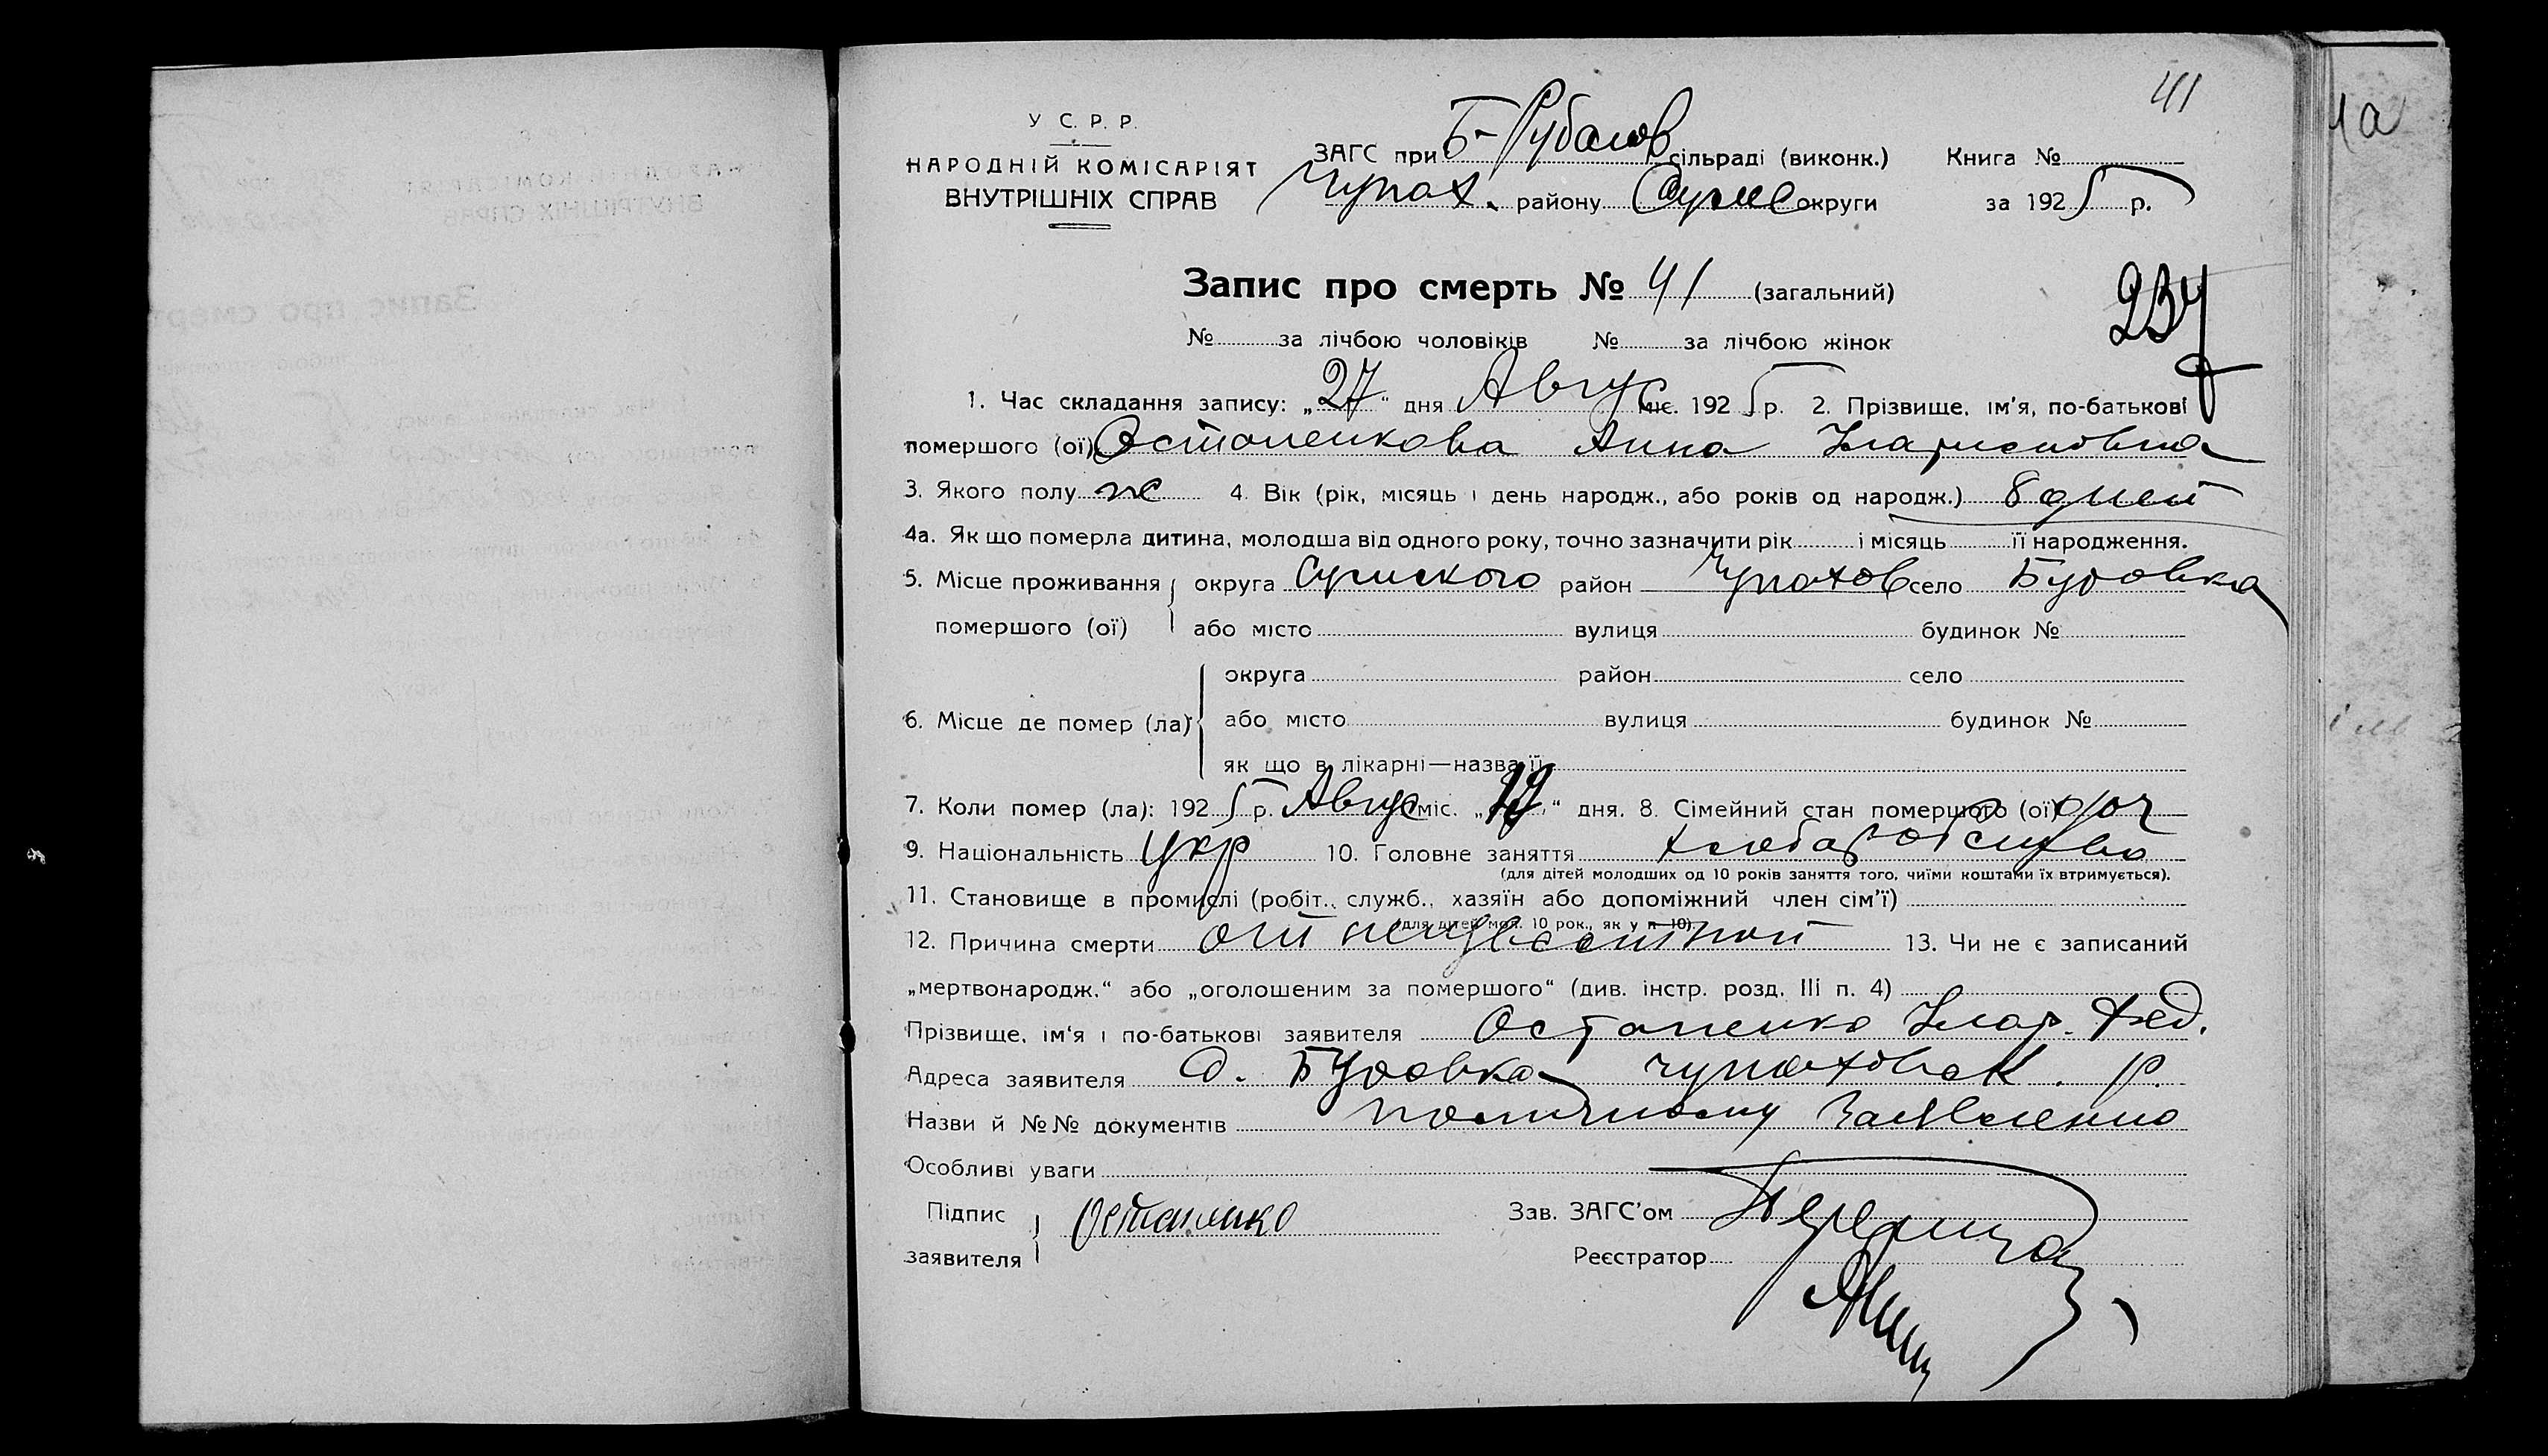 41
У С. Р. Р.
НАРОДНІЙ КОМІСАРІЯТ
ВНУТРІШНІХ СПРАВ
ЗАГС при Б-Рубанов сільраді (виконк.) Книга №
Чупах. району Сумс округи за 1925 р.
Запис про смерть № 41 (загальний)
234
№ за лічбою чоловіків № за лічбою жінок
1. Час складання запису: „27“ дня Авгус міс. 1925 р. 2. Прізвище, ім'я, по-батькові
помершого (ої) Остапенкова Анна Иларионовна
3. Якого полу ж 4. Вік (рік, місяць і день народж., або років од народж.) 8 дней
4а. Як що померла дитина, молодша від одного року, точно зазначити рік і місяць її народження.
5. Місце проживання округа Сумского район Чупахов село Будовка
помершого (ої) або місто вулиця будинок №
округа район село
6. Місце де помер (ла) або місто вулиця будинок №
як що в лікарні—назва її
7. Коли помер (ла): 1925 р. Авгус міс. „19“ дня. 8. Сімейний стан помершого (ої) доч
9. Національність Укр 10. Головне заняття хлебаробство
(для дітей молодших од 10 років заняття того, чиїми коштами їх втримується).
11. Становище в промислі (робіт., служб., хазяїн або допоміжний член сім'ї)
(для дітей мол. 10 рок., як у п. 10)
12. Причина смерти от неизвестной 13. Чи не є записаний
„мертвонародж.“ або „оголошеним за помершого“ (див. інстр. розд. III п. 4)
Прізвище, ім'я і по-батькові заявителя Остапенко Илар. Фед.
Адреса заявителя с. Будовка Чупаховск. р.
Назви й №№ документів поличному Заявлению
Особливі уваги
Підпис заявителя Остапенко Зав. ЗАГС'ом
Реєстратор